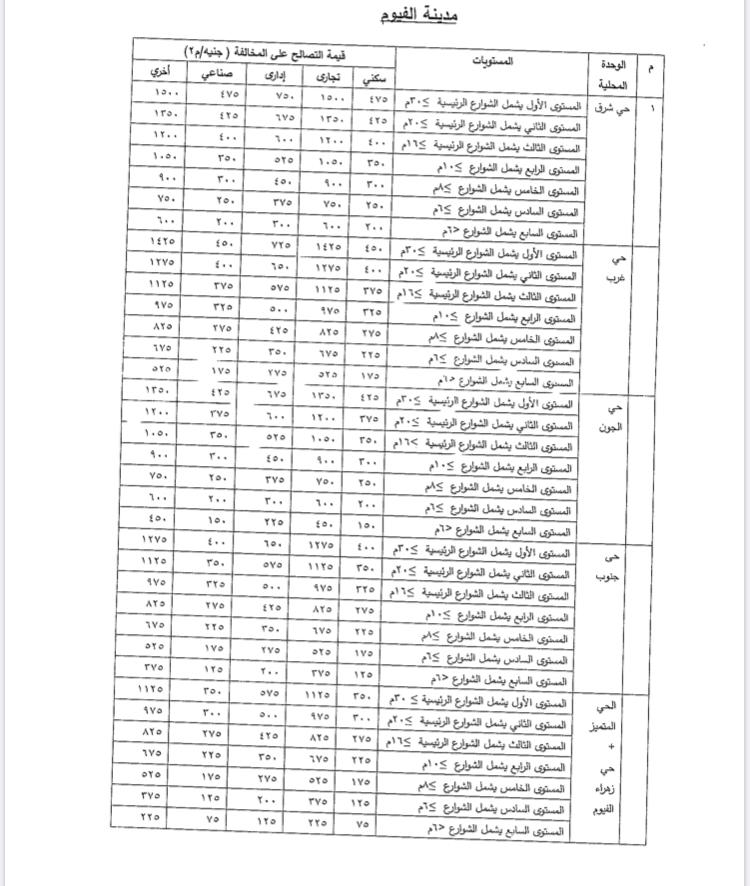 مدينة الفيوم
م الوحدة المحلية المستويات قيمة التصالح على المخالفة ( جنيه/م٢)
سكني تجارى إدارى صناعي أخري
١ حي شرق المستوى الأول يشمل الشوارع الرئيسية ≥٣٠م ٤٧٥ ١٥٠٠ ٧٥٠ ٤٧٥ ١٥٠٠
المستوى الثاني يشمل الشوارع الرئيسية ≥٢٠م ٤٢٥ ١٣٥٠ ٦٧٥ ٤٢٥ ١٣٥٠
المستوى الثالث يشمل الشوارع الرئيسية ≥١٦م ٤٠٠ ١٢٠٠ ٦٠٠ ٤٠٠ ١٢٠٠
المستوى الرابع يشمل الشوارع ≥١٠م ٣٥٠ ١٠٥٠ ٥٢٥ ٣٥٠ ١٠٥٠
المستوى الخامس يشمل الشوارع ≥٨م ٣٠٠ ٩٠٠ ٤٥٠ ٣٠٠ ٩٠٠
المستوى السادس يشمل الشوارع ≥٦م ٢٥٠ ٧٥٠ ٣٧٥ ٢٥٠ ٧٥٠
المستوى السابع يشمل الشوارع <٦م ٢٠٠ ٦٠٠ ٣٠٠ ٢٠٠ ٦٠٠
حي غرب المستوى الأول يشمل الشوارع الرئيسية ≥٣٠م ٤٥٠ ١٤٢٥ ٧٢٥ ٤٥٠ ١٤٢٥
المستوى الثاني يشمل الشوارع الرئيسية ≥٢٠م ٤٠٠ ١٢٧٥ ٦٥٠ ٤٠٠ ١٢٧٥
المستوى الثالث يشمل الشوارع الرئيسية ≥١٦م ٣٧٥ ١١٢٥ ٥٧٥ ٣٧٥ ١١٢٥
المستوى الرابع يشمل الشوارع ≥١٠م ٣٢٥ ٩٧٥ ٥٠٠ ٣٢٥ ٩٧٥
المستوى الخامس يشمل الشوارع ≥٨م ٢٧٥ ٨٢٥ ٤٢٥ ٢٧٥ ٨٢٥
المستوى السادس يشمل الشوارع ≥٦م ٢٢٥ ٦٧٥ ٣٥٠ ٢٢٥ ٦٧٥
المستوى السابع يشمل الشوارع <٦م ١٧٥ ٥٢٥ ٢٧٥ ١٧٥ ٥٢٥
حي الجون المستوى الأول يشمل الشوارع الرئيسية ≥٣٠م ٤٢٥ ١٣٥٠ ٦٧٥ ٤٢٥ ١٣٥٠
المستوى الثاني يشمل الشوارع الرئيسية ≥٢٠م ٣٧٥ ١٢٠٠ ٦٠٠ ٣٧٥ ١٢٠٠
المستوى الثالث يشمل الشوارع الرئيسية >١٦م ٣٥٠ ١٠٥٠ ٥٢٥ ٣٥٠ ١٠٥٠
المستوى الرابع يشمل الشوارع ≥١٠م ٣٠٠ ٩٠٠ ٤٥٠ ٣٠٠ ٩٠٠
المستوى الخامس يشمل الشوارع ≥٨م ٢٥٠ ٧٥٠ ٣٧٥ ٢٥٠ ٧٥٠
المستوى السادس يشمل الشوارع ≥٦م ٢٠٠ ٦٠٠ ٣٠٠ ٢٠٠ ٦٠٠
المستوى السابع يشمل الشوارع <٦م ١٥٠ ٤٥٠ ٢٢٥ ١٥٠ ٤٥٠
حى جنوب المستوى الأول يشمل الشوارع الرئيسية ≥٣٠م ٤٠٠ ١٢٧٥ ٦٥٠ ٤٠٠ ١٢٧٥
المستوى الثاني يشمل الشوارع الرئيسية ≥٢٠م ٣٥٠ ١١٢٥ ٥٧٥ ٣٥٠ ١١٢٥
المستوى الثالث يشمل الشوارع الرئيسية ≥١٦م ٣٢٥ ٩٧٥ ٥٠٠ ٣٢٥ ٩٧٥
المستوى الرابع يشمل الشوارع ≥١٠م ٢٧٥ ٨٢٥ ٤٢٥ ٢٧٥ ٨٢٥
المستوى الخامس يشمل الشوارع ≥٨م ٢٢٥ ٦٧٥ ٣٥٠ ٢٢٥ ٦٧٥
المستوى السادس يشمل الشوارع ≥٦م ١٧٥ ٥٢٥ ٢٧٥ ١٧٥ ٥٢٥
المستوى السابع يشمل الشوارع <٦م ١٢٥ ٣٧٥ ٢٠٠ ١٢٥ ٣٧٥
الحي المتميز + حي زهراء الفيوم المستوى الأول يشمل الشوارع الرئيسية ≥٣٠م ٣٥٠ ١١٢٥ ٥٧٥ ٣٥٠ ١١٢٥
المستوى الثاني يشمل الشوارع الرئيسية ≥٢٠م ٣٠٠ ٩٧٥ ٥٠٠ ٣٠٠ ٩٧٥
المستوى الثالث يشمل الشوارع الرئيسية ≥١٦م ٢٧٥ ٨٢٥ ٤٢٥ ٢٧٥ ٨٢٥
المستوى الرابع يشمل الشوارع ≥١٠م ٢٢٥ ٦٧٥ ٣٥٠ ٢٢٥ ٦٧٥
المستوى الخامس يشمل الشوارع ≥٨م ١٧٥ ٥٢٥ ٢٧٥ ١٧٥ ٥٢٥
المستوى السادس يشمل الشوارع ≥٦م ١٢٥ ٣٧٥ ٢٠٠ ١٢٥ ٣٧٥
المستوى السابع يشمل الشوارع <٦م ٧٥ ٢٢٥ ١٢٥ ٧٥ ٢٢٥